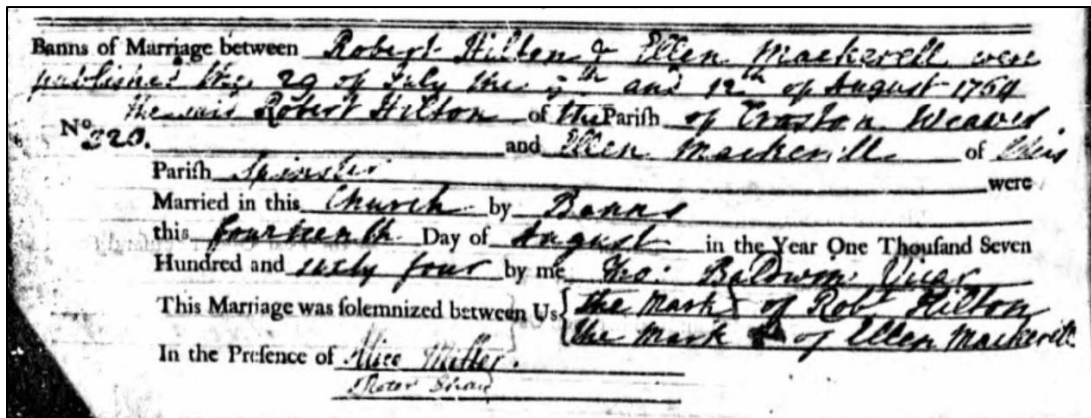 Banns of Marriage between Robert Hilton & Ellen Mackerell were
published the 29 of July the 5th and 12th of August 1764
the said Robert Hilton of the Parish of Croston Weaver
No 320. and Ellen Mackerill of this
Parish Spinster were
Married in this Church by Banns
this fourteenth Day of August in the Year One Thousand Seven
Hundred and sixty four by me Tho: Baldwin Vicar
This Marriage was solemnized between Us { the Mark X of Robt Hilton
the Mark X of Ellen Mackerill
In the Presence of Alice Miller.
Peter Shaw